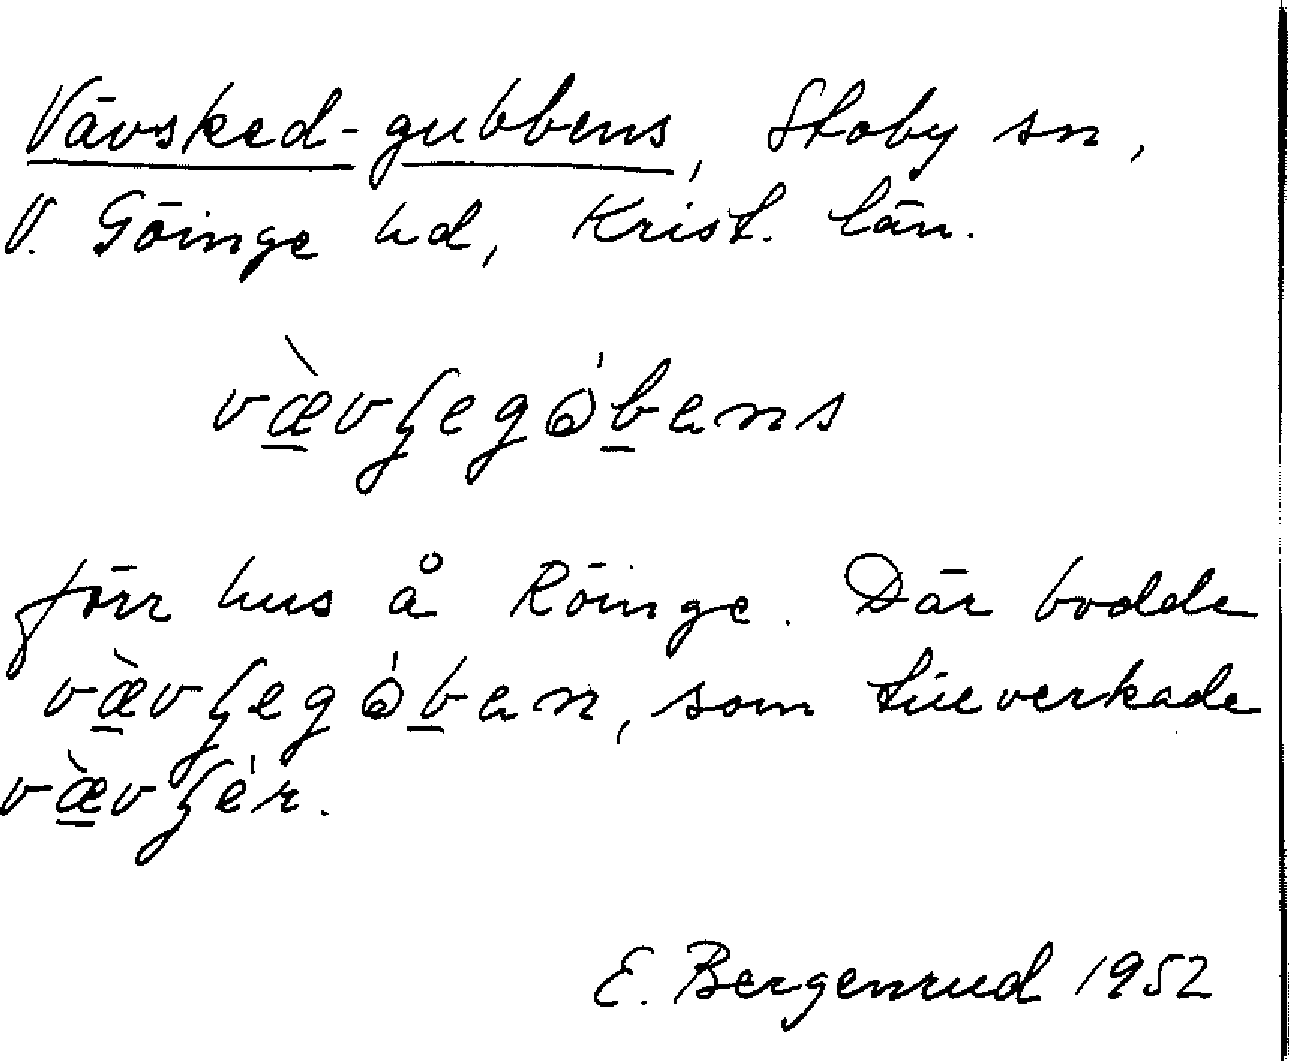 Vävsked-gubbens, Stoby sn,
V. Göinge hd, Krist. län.
vævʃegòbens
förr hus å Röinge. Där bodde
vævʃegòben, som tillverkade
vævʃér.
E. Bergenrud 1952